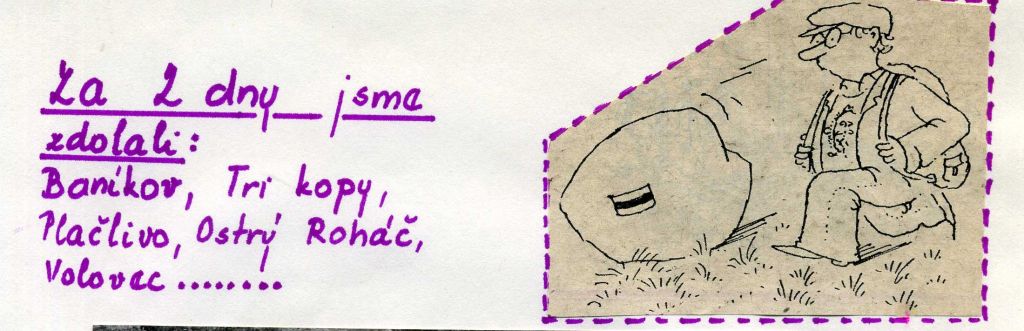 Za 2 dny jsme
zdolali:
Baníkov, Tri kopy,
Plačlivo, Ostrý Roháč,
Volovec ........